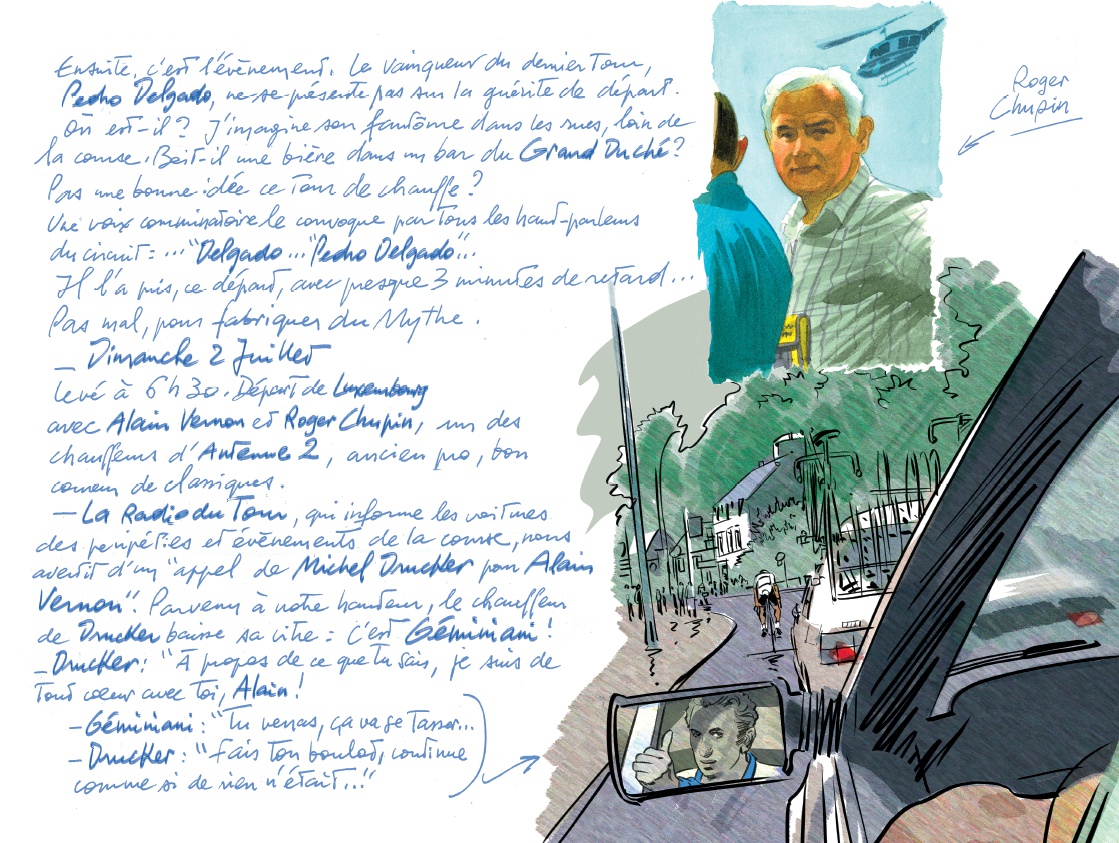 Ensuite, c'est l'évènement. Le vainqueur du dernier Tour,
Pedro Delgado, ne se présente pas sur la guérite de départ.
Où est-il ? J'imagine son fantôme dans les rues, loin de
la course. Boit-il une bière dans un bar du Grand Duché ?
Pas une bonne idée ce Tour de chauffe ?
Une voix comminatoire le convoque par tous les haut-parleurs
du circuit : ..."Delgado..."Pedro Delgado"...
Il l'a pris, ce départ, avec presque 3 minutes de retard...
Pas mal, pour fabriquer du Mythe.
_ Dimanche 2 Juillet
levé à 6h30. Départ de Luxembourg
avec Alain Vernon et Roger Chupin, un des
chauffeurs d'Antenne 2, ancien pro, bon
coureur de classiques.
— La Radio du Tour, qui informe les voitures
des péripéties et évènements de la course, nous
avertit d'un "appel de Michel Drucker pour Alain
Vernon". Parvenu à notre hauteur, le chauffeur
de Drucker baisse sa vitre : c'est Géminiani !
_Drucker : "À propos de ce que tu sais, je suis de
tout cœur avec toi, Alain !
-Géminiani : "Tu verras, ça va se tasser...
-Drucker : "fais ton boulot, continue
comme si de rien n'était..."
Roger
Chupin